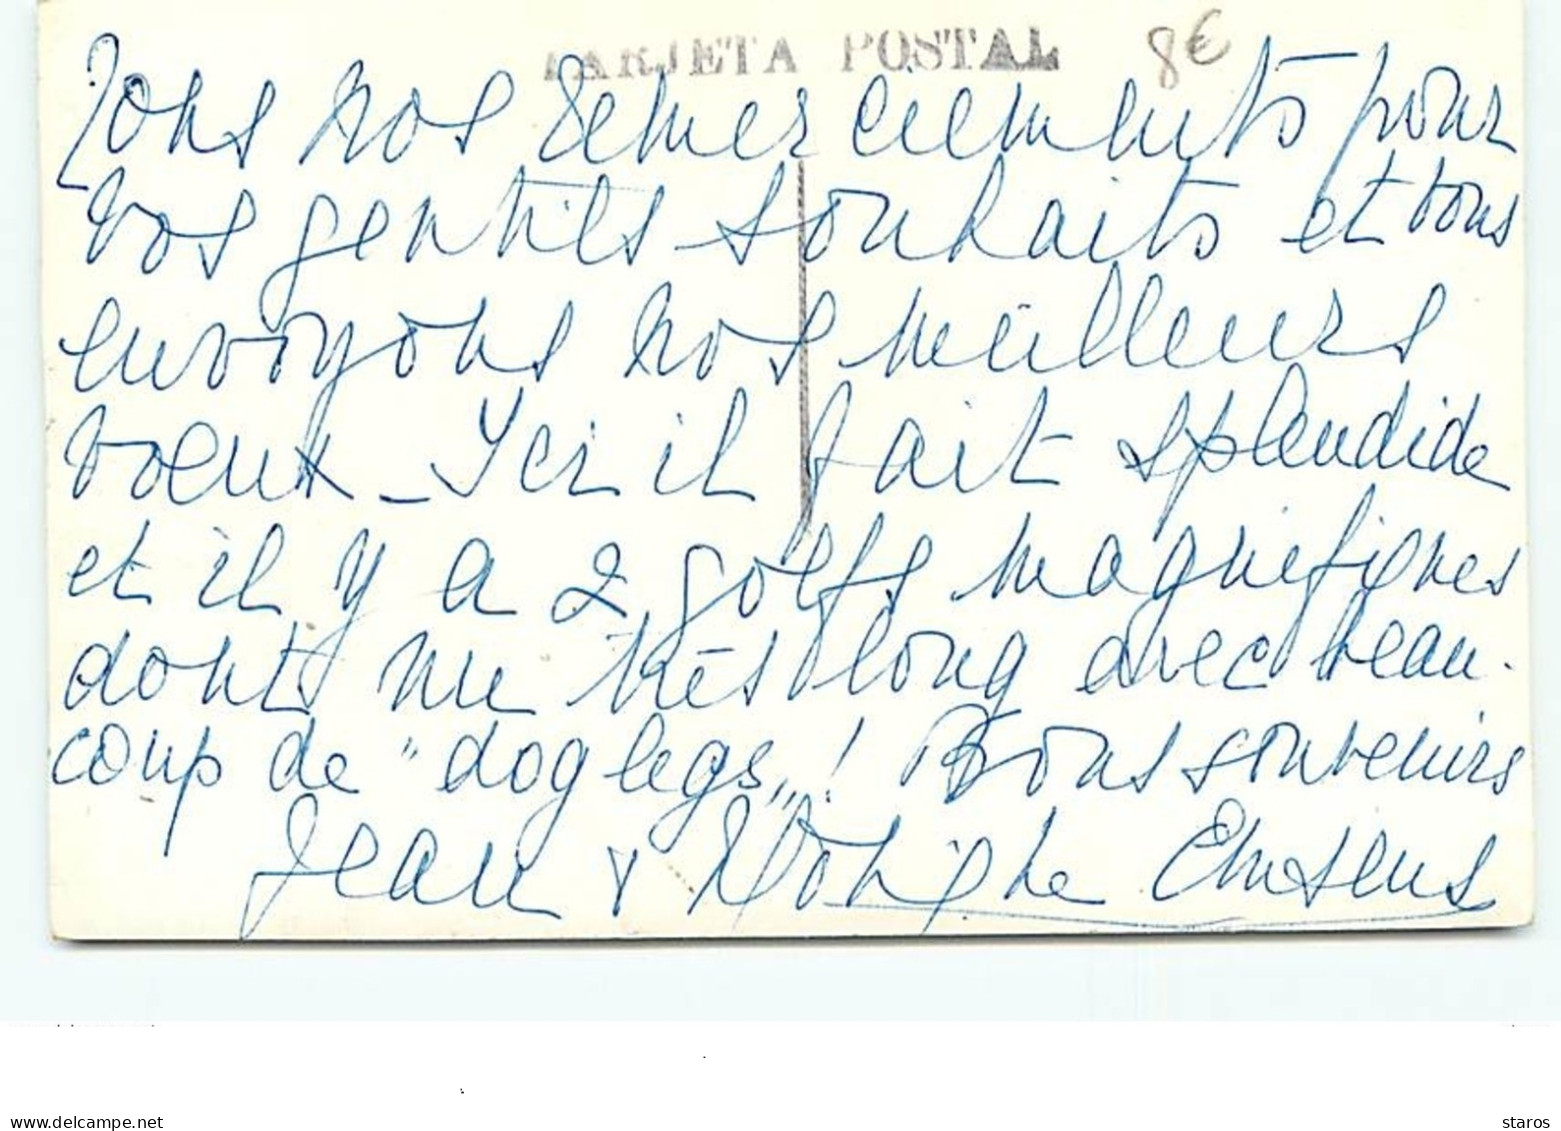 TARJETA POSTAL 8€
Tous nos remerciements pour
vos gentils souhaits et vous
envoyons nos meilleurs
vœux - Ici il fait splendide
et il y a 2 golfs magnifiques
dont un très long avec beau-
coup de "dog legs"! Bons souvenirs
Jean &
www.delcampe.net
staros